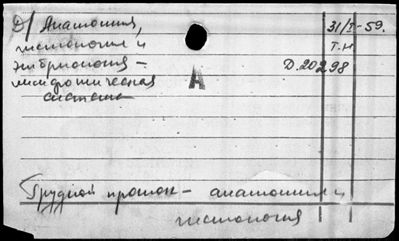 Д/ Анатомия, 31/I-59.
гистология и Т.Н
эмбриология - Д.20298
лимфатическая
система
А
Грудной проток - анатомия и
гистология